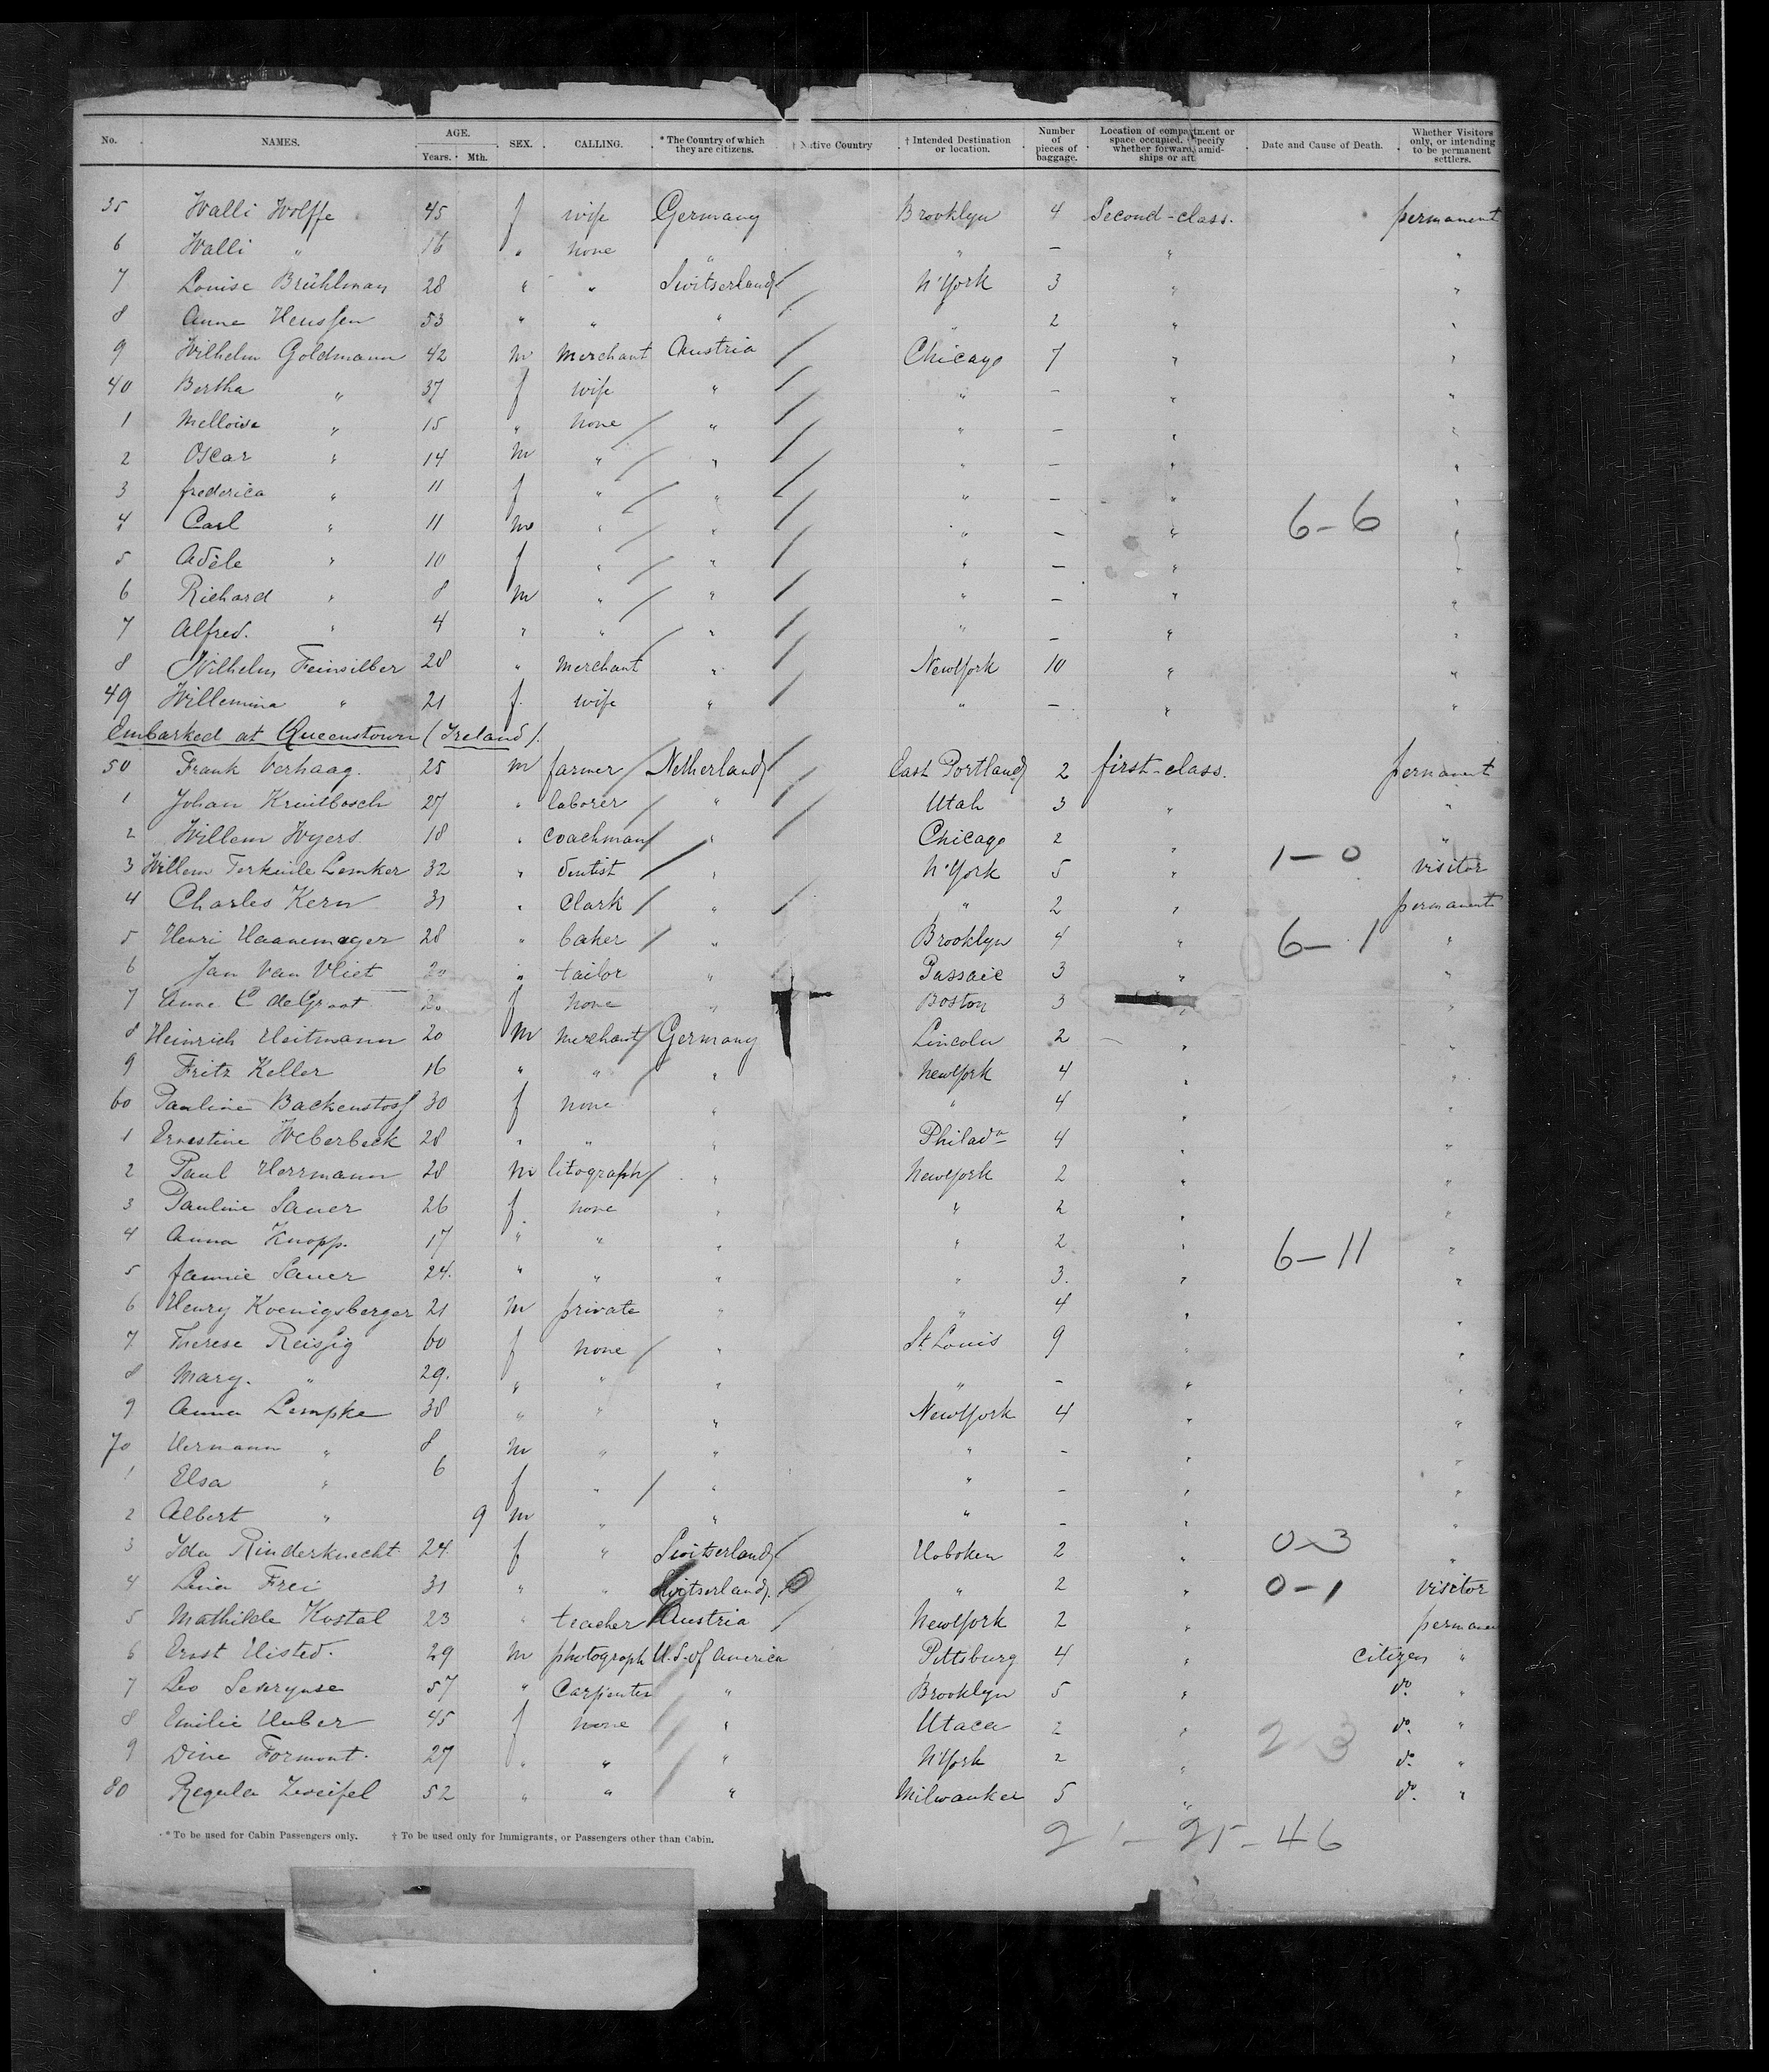 No. NAMES. AGE. Years. Mth. SEX. CALLING. * The Country of which they are citizens. † Native Country † Intended Destination or location. Number of pieces of baggage. Location of compartment or space occupied. Specify whether forward, amidships or aft Date and Cause of Death. Whether Visitors only, or intending to be permanent settlers.
35 Walli Wolffe 45 f wife Germany Brooklyn 4 Second-class. permanent
6 Walli " 16 " none " " — " "
7 Louise Brühlman 28 " " Switserland N'York 3 " "
8 Anne Heussen 53 " " " " 2 " "
9 Wilhelm Goldmann 42 m merchant Austria Chicago 7 " "
40 Bertha " 37 f wife " " — " "
1 Melloise " 15 " none " " — " "
2 Oscar " 14 m " " " — " "
3 frederica " 11 f " " " — " "
4 Carl " 11 m " " " — " 6-6 "
5 Adèle " 10 f " " " — " "
6 Richard " 8 m " " " — " "
7 Alfred. " 4 " " " " — " "
8 Wilhelm Feinsilber 28 " merchant " NewYork 10 " "
49 Willemina " 21 f. wife " " — " "
Embarked at Queenstown (Ireland).
50 Frank Verhaag. 25 m farmer Netherland East Portland 2 first-class. permanent
1 Johan Kruitbosch 27 " laborer " Utah 3 " "
2 Willem Wyers 18 " coachman " Chicago 2 " "
3 Willem Terkuile Lemker 32 " dentist " N'York 5 " 1-0 visitor
4 Charles Kern 31 " Clark " " 2 " permanent
5 Henri Haanemager 28 " baker " Brooklyn 4 " 6-1 "
6 Jan Van Vliet " tailor " Passaic 3 " "
7 Anne C deGroot f none " Boston 3 " "
8 Heinrich Heitmann 20 m merchant Germany Lincoln 2 " "
9 Fritz Keller 16 " " " NewYork 4 " "
60 Pauline Backenstoss 30 f none " " 4 " "
1 Ernestine Weberbeck 28 " " " Philada 4 " "
2 Paul Herrmann 28 m litograph " NewYork 2 " "
3 Pauline Sauer 26 f. none " " 2 " "
4 Anna Knopp. 17 " " " " 2 " 6-11 "
5 fannie Sauer 24. " " " " 3. " "
6 Henry Koenigsberger 21 m private " " 4 " "
7 Therese Reissig 60 f none " St Louis 9 " "
8 Mary. " 29. " " " " — " "
9 Anna Lempke 38 " " " NewYork 4 " "
70 Hermann " 8 m " " " — " "
1 Elsa " 6 f " " " — " "
2 Albert " 9 m " " " — " "
3 Ida Rinderknecht 24. f " Switserland Hoboken 2 " 0-3 "
4 Lina Frei 31 " " Switserland. " 2 " 0-1 visitor
5 Mathilde Kostal 23 " teacher Austria NewYork 2 " permanen
6 Ernst Histed. 29 m photograph U.S. of America Pittsburg 4 " Citizen "
7 Leo Severynse 57 " Carpenter " Brooklyn 5 " do. "
8 Emilie Huber 45 f none " Utaca 2 " 2 3 do. "
9 Dine Formont. 27 " " " N'York 2 " do. "
80 Regula Zweifel 52 " " " Milwaukee 5 " do. "
* To be used for Cabin Passengers only. † To be used only for Immigrants, or Passengers other than Cabin.
21-25-46